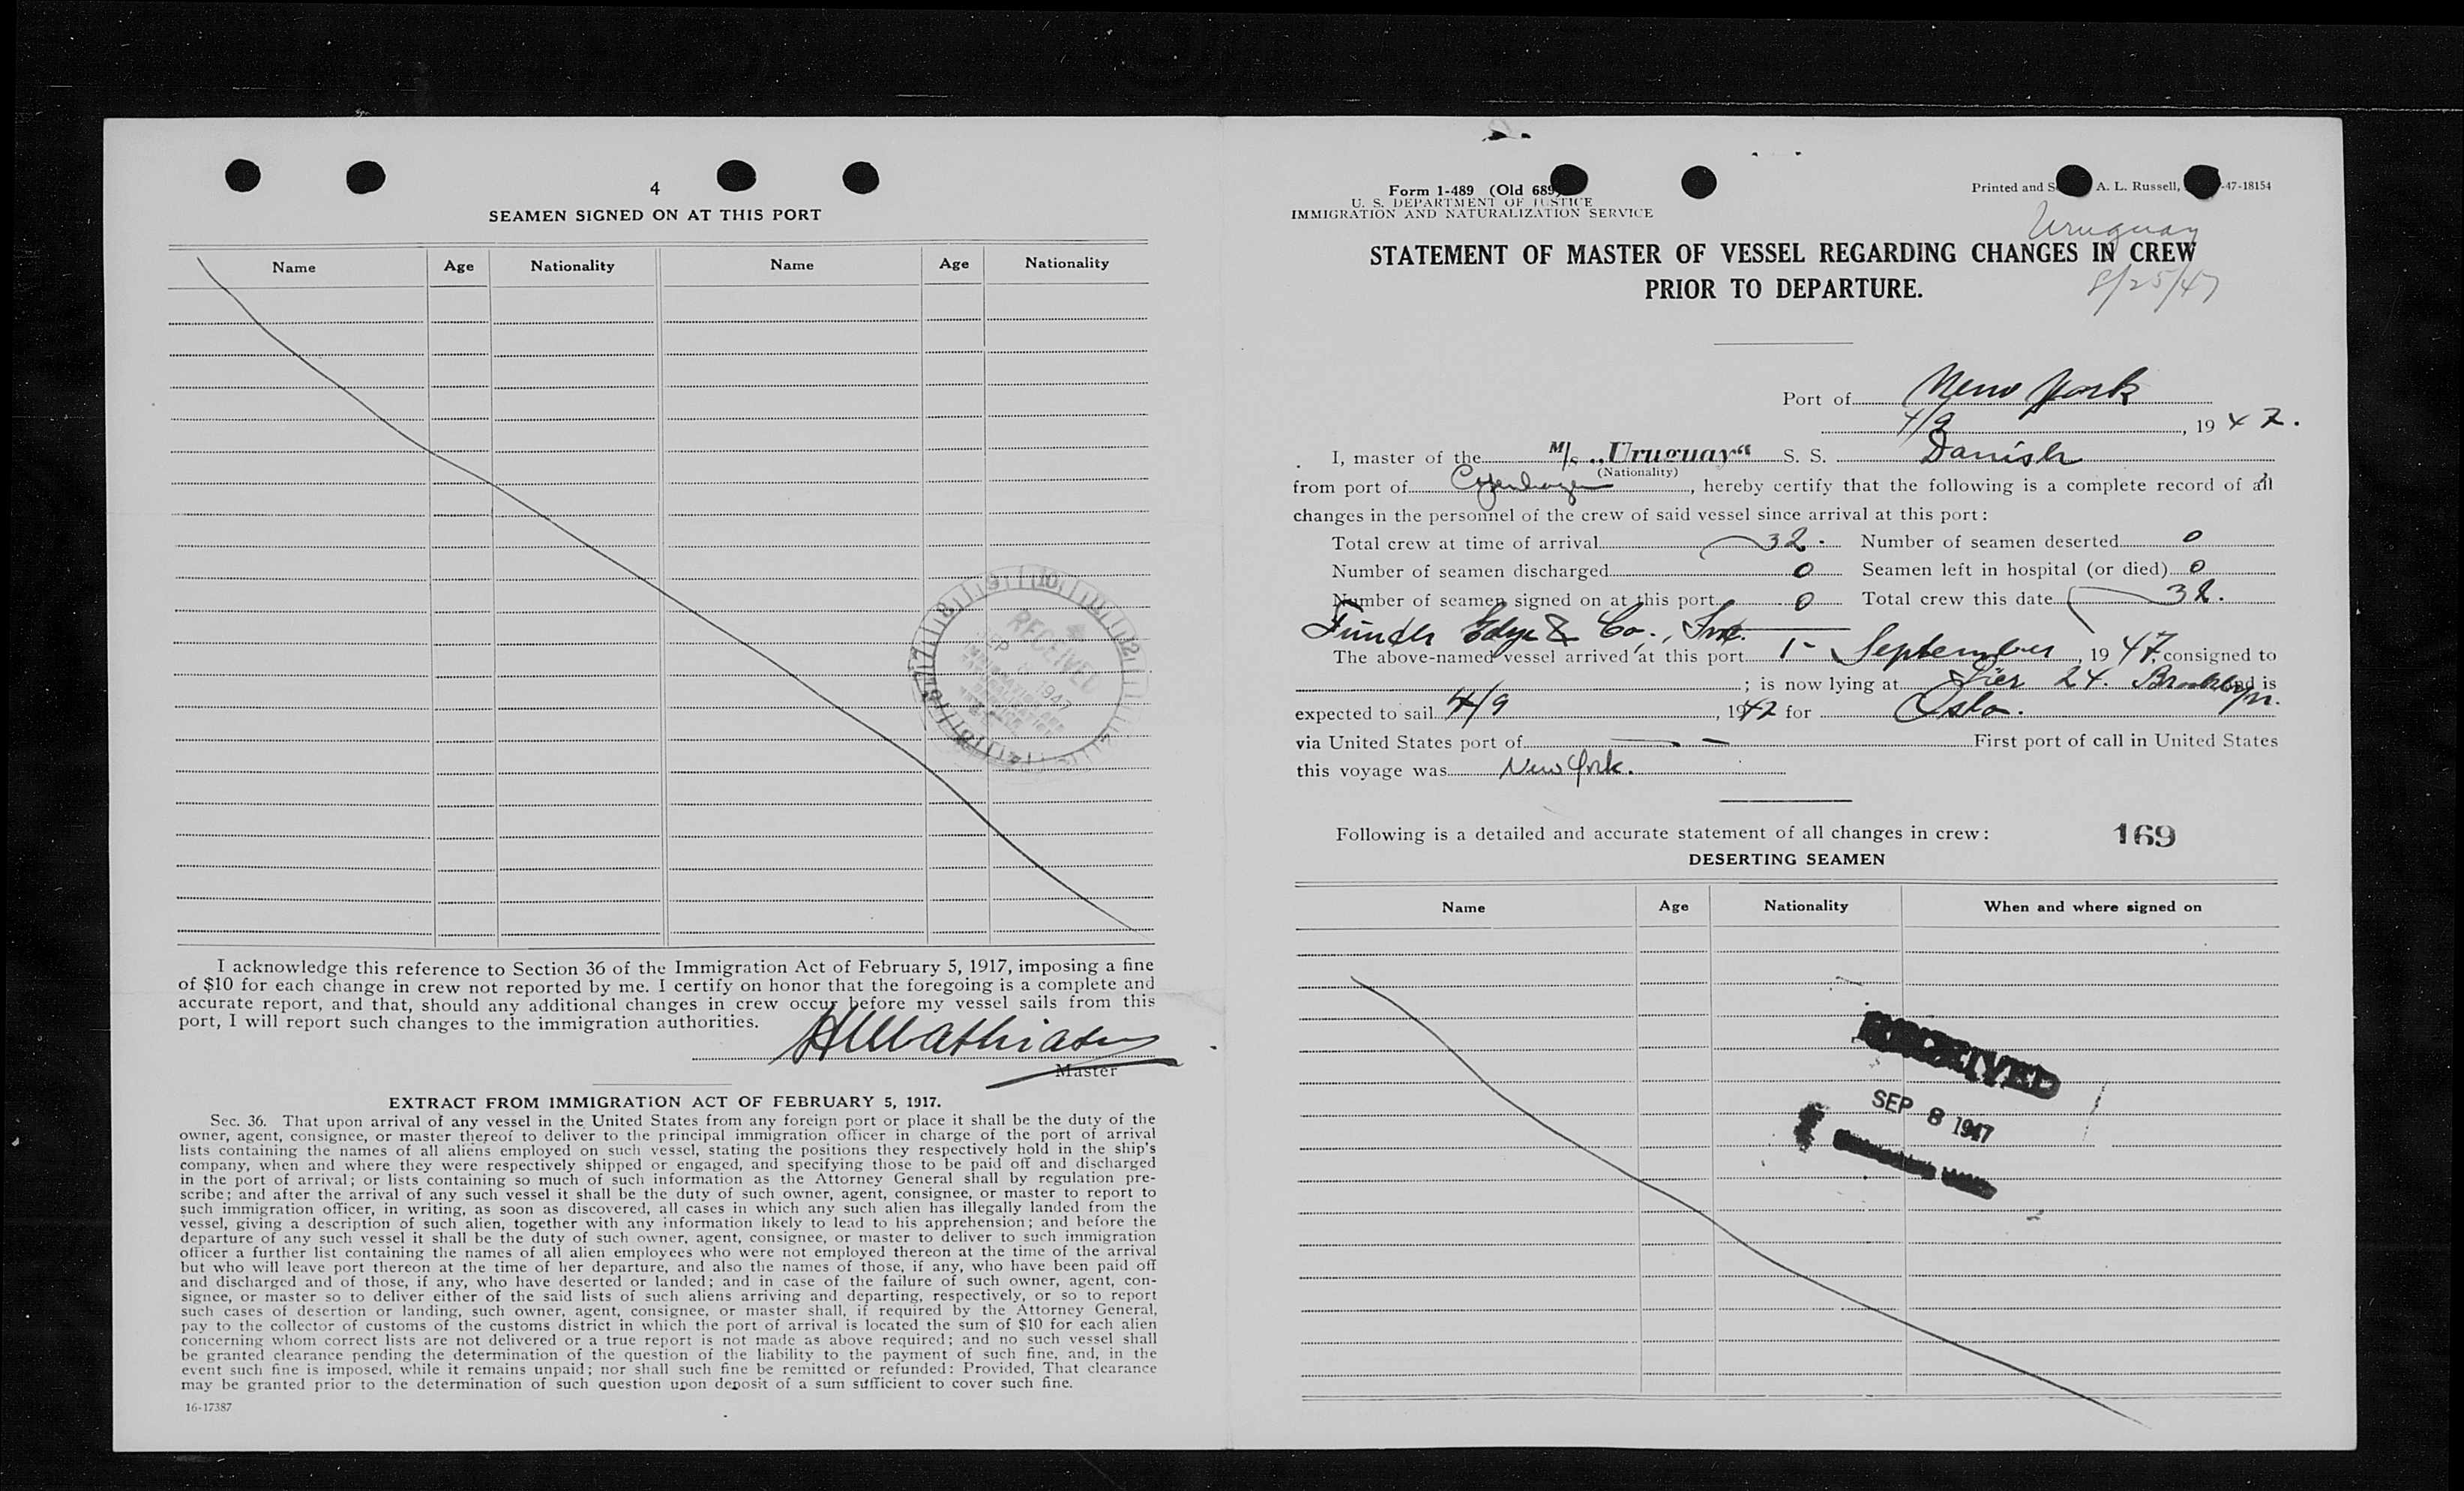 4
SEAMEN SIGNED ON AT THIS PORT
Name Age Nationality Name Age Nationality
RECEIVED
SEP 1947
I acknowledge this reference to Section 36 of the Immigration Act of February 5, 1917, imposing a fine
of $10 for each change in crew not reported by me. I certify on honor that the foregoing is a complete and
accurate report, and that, should any additional changes in crew occur before my vessel sails from this
port, I will report such changes to the immigration authorities.
HMathiasen
Master
EXTRACT FROM IMMIGRATION ACT OF FEBRUARY 5, 1917.
Sec. 36. That upon arrival of any vessel in the United States from any foreign port or place it shall be the duty of the
owner, agent, consignee, or master thereof to deliver to the principal immigration officer in charge of the port of arrival
lists containing the names of all aliens employed on such vessel, stating the positions they respectively hold in the ship's
company, when and where they were respectively shipped or engaged, and specifying those to be paid off and discharged
in the port of arrival; or lists containing so much of such information as the Attorney General shall by regulation pre-
scribe; and after the arrival of any such vessel it shall be the duty of such owner, agent, consignee, or master to report to
such immigration officer, in writing, as soon as discovered, all cases in which any such alien has illegally landed from the
vessel, giving a description of such alien, together with any information likely to lead to his apprehension; and before the
departure of any such vessel it shall be the duty of such owner, agent, consignee, or master to deliver to such immigration
officer a further list containing the names of all alien employees who were not employed thereon at the time of the arrival
but who will leave port thereon at the time of her departure, and also the names of those, if any, who have been paid off
and discharged and of those, if any, who have deserted or landed; and in case of the failure of such owner, agent, con-
signee, or master so to deliver either of the said lists of such aliens arriving and departing, respectively, or so to report
such cases of desertion or landing, such owner, agent, consignee, or master shall, if required by the Attorney General,
pay to the collector of customs of the customs district in which the port of arrival is located the sum of $10 for each alien
concerning whom correct lists are not delivered or a true report is not made as above required; and no such vessel shall
be granted clearance pending the determination of the question of the liability to the payment of such fine, and, in the
event such fine is imposed, while it remains unpaid; nor shall such fine be remitted or refunded: Provided, That clearance
may be granted prior to the determination of such question upon deposit of a sum sufficient to cover such fine.
16-17387
Form 1-489 (Old 689
U. S. DEPARTMENT OF JUSTICE
IMMIGRATION AND NATURALIZATION SERVICE
Printed and S A. L. Russell, -47-18154
Uruguay
STATEMENT OF MASTER OF VESSEL REGARDING CHANGES IN CREW
PRIOR TO DEPARTURE.
8/25/47
Port of New York
4/9, 1947.
I, master of the M/S „Uruguay“ S. S. Danish
(Nationality)
from port of Copenhagen, hereby certify that the following is a complete record of all
changes in the personnel of the crew of said vessel since arrival at this port:
Total crew at time of arrival 32. Number of seamen deserted 0
Number of seamen discharged 0 Seamen left in hospital (or died) 0
Number of seamen signed on at this port 0 Total crew this date 32.
Funch Edye & Co., Inc.
The above-named vessel arrived at this port 1- September, 1947, consigned to
; is now lying at Pier 24. Brooklyn and is
expected to sail 4/9, 1947 for Oslo.
via United States port of — — First port of call in United States
this voyage was New York.
Following is a detailed and accurate statement of all changes in crew: 169
DESERTING SEAMEN
Name Age Nationality When and where signed on
RECEIVED
SEP 8 1947